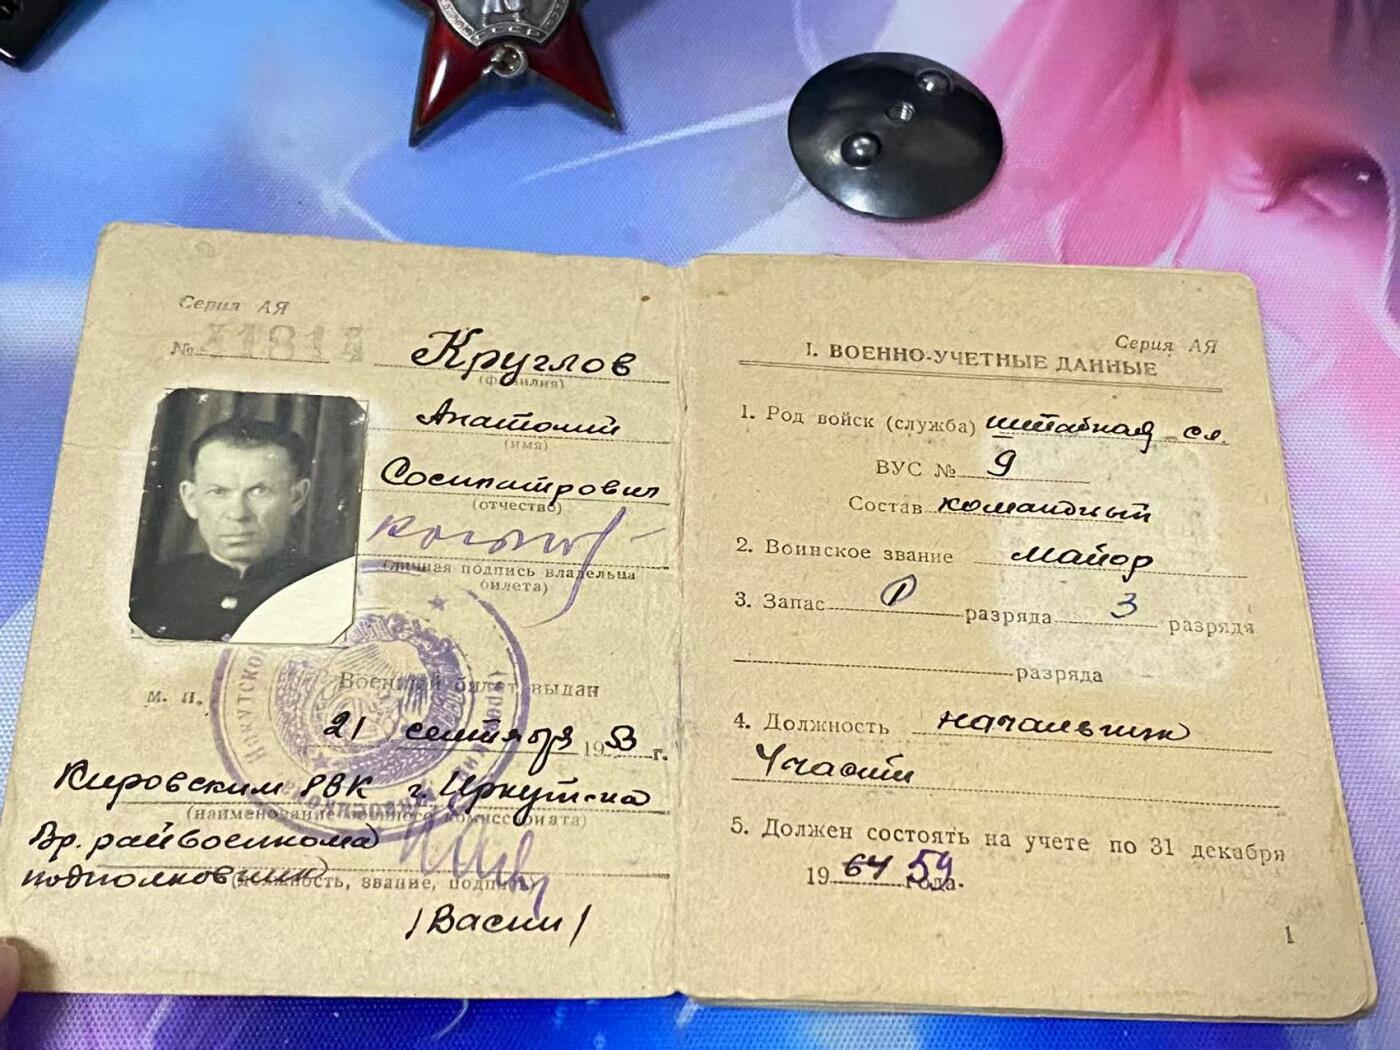 СССР
Серия АЯ
№
Круглов
(фамилия)
Анатолий
(имя)
Сосипатрович
(отчество)
(личная подпись владельца
билета)
М. П.
Военный билет выдан
21 сентября 1953 г.
Кировским РВК г. Иркутска
(наименование военного комиссариата)
Вр. райвоенкома
подполковник
(должность, звание, подпись)
/Васин/
Серия АЯ
I. ВОЕННО-УЧЕТНЫЕ ДАННЫЕ
1. Род войск (служба) штабная сл.
ВУС № 9
Состав командный
2. Воинское звание майор
3. Запас разряда 3 разряда
разряда
4. Должность начальник
участка
5. Должен состоять на учете по 31 декабря
19 64 59 года.
1